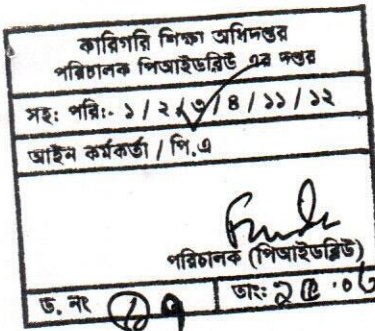 কারিগরি শিক্ষা অধিদপ্তর
পরিচালক পিআইডব্লিউ এর দপ্তর
সহ: পরি:- ১ / ২ / ৩ / ৪ / ১১ / ১২
আইন কর্মকর্তা / পি.এ
পরিচালক (পিআইডব্লিউ)
ড. নং
তাং: ২৫.০৬